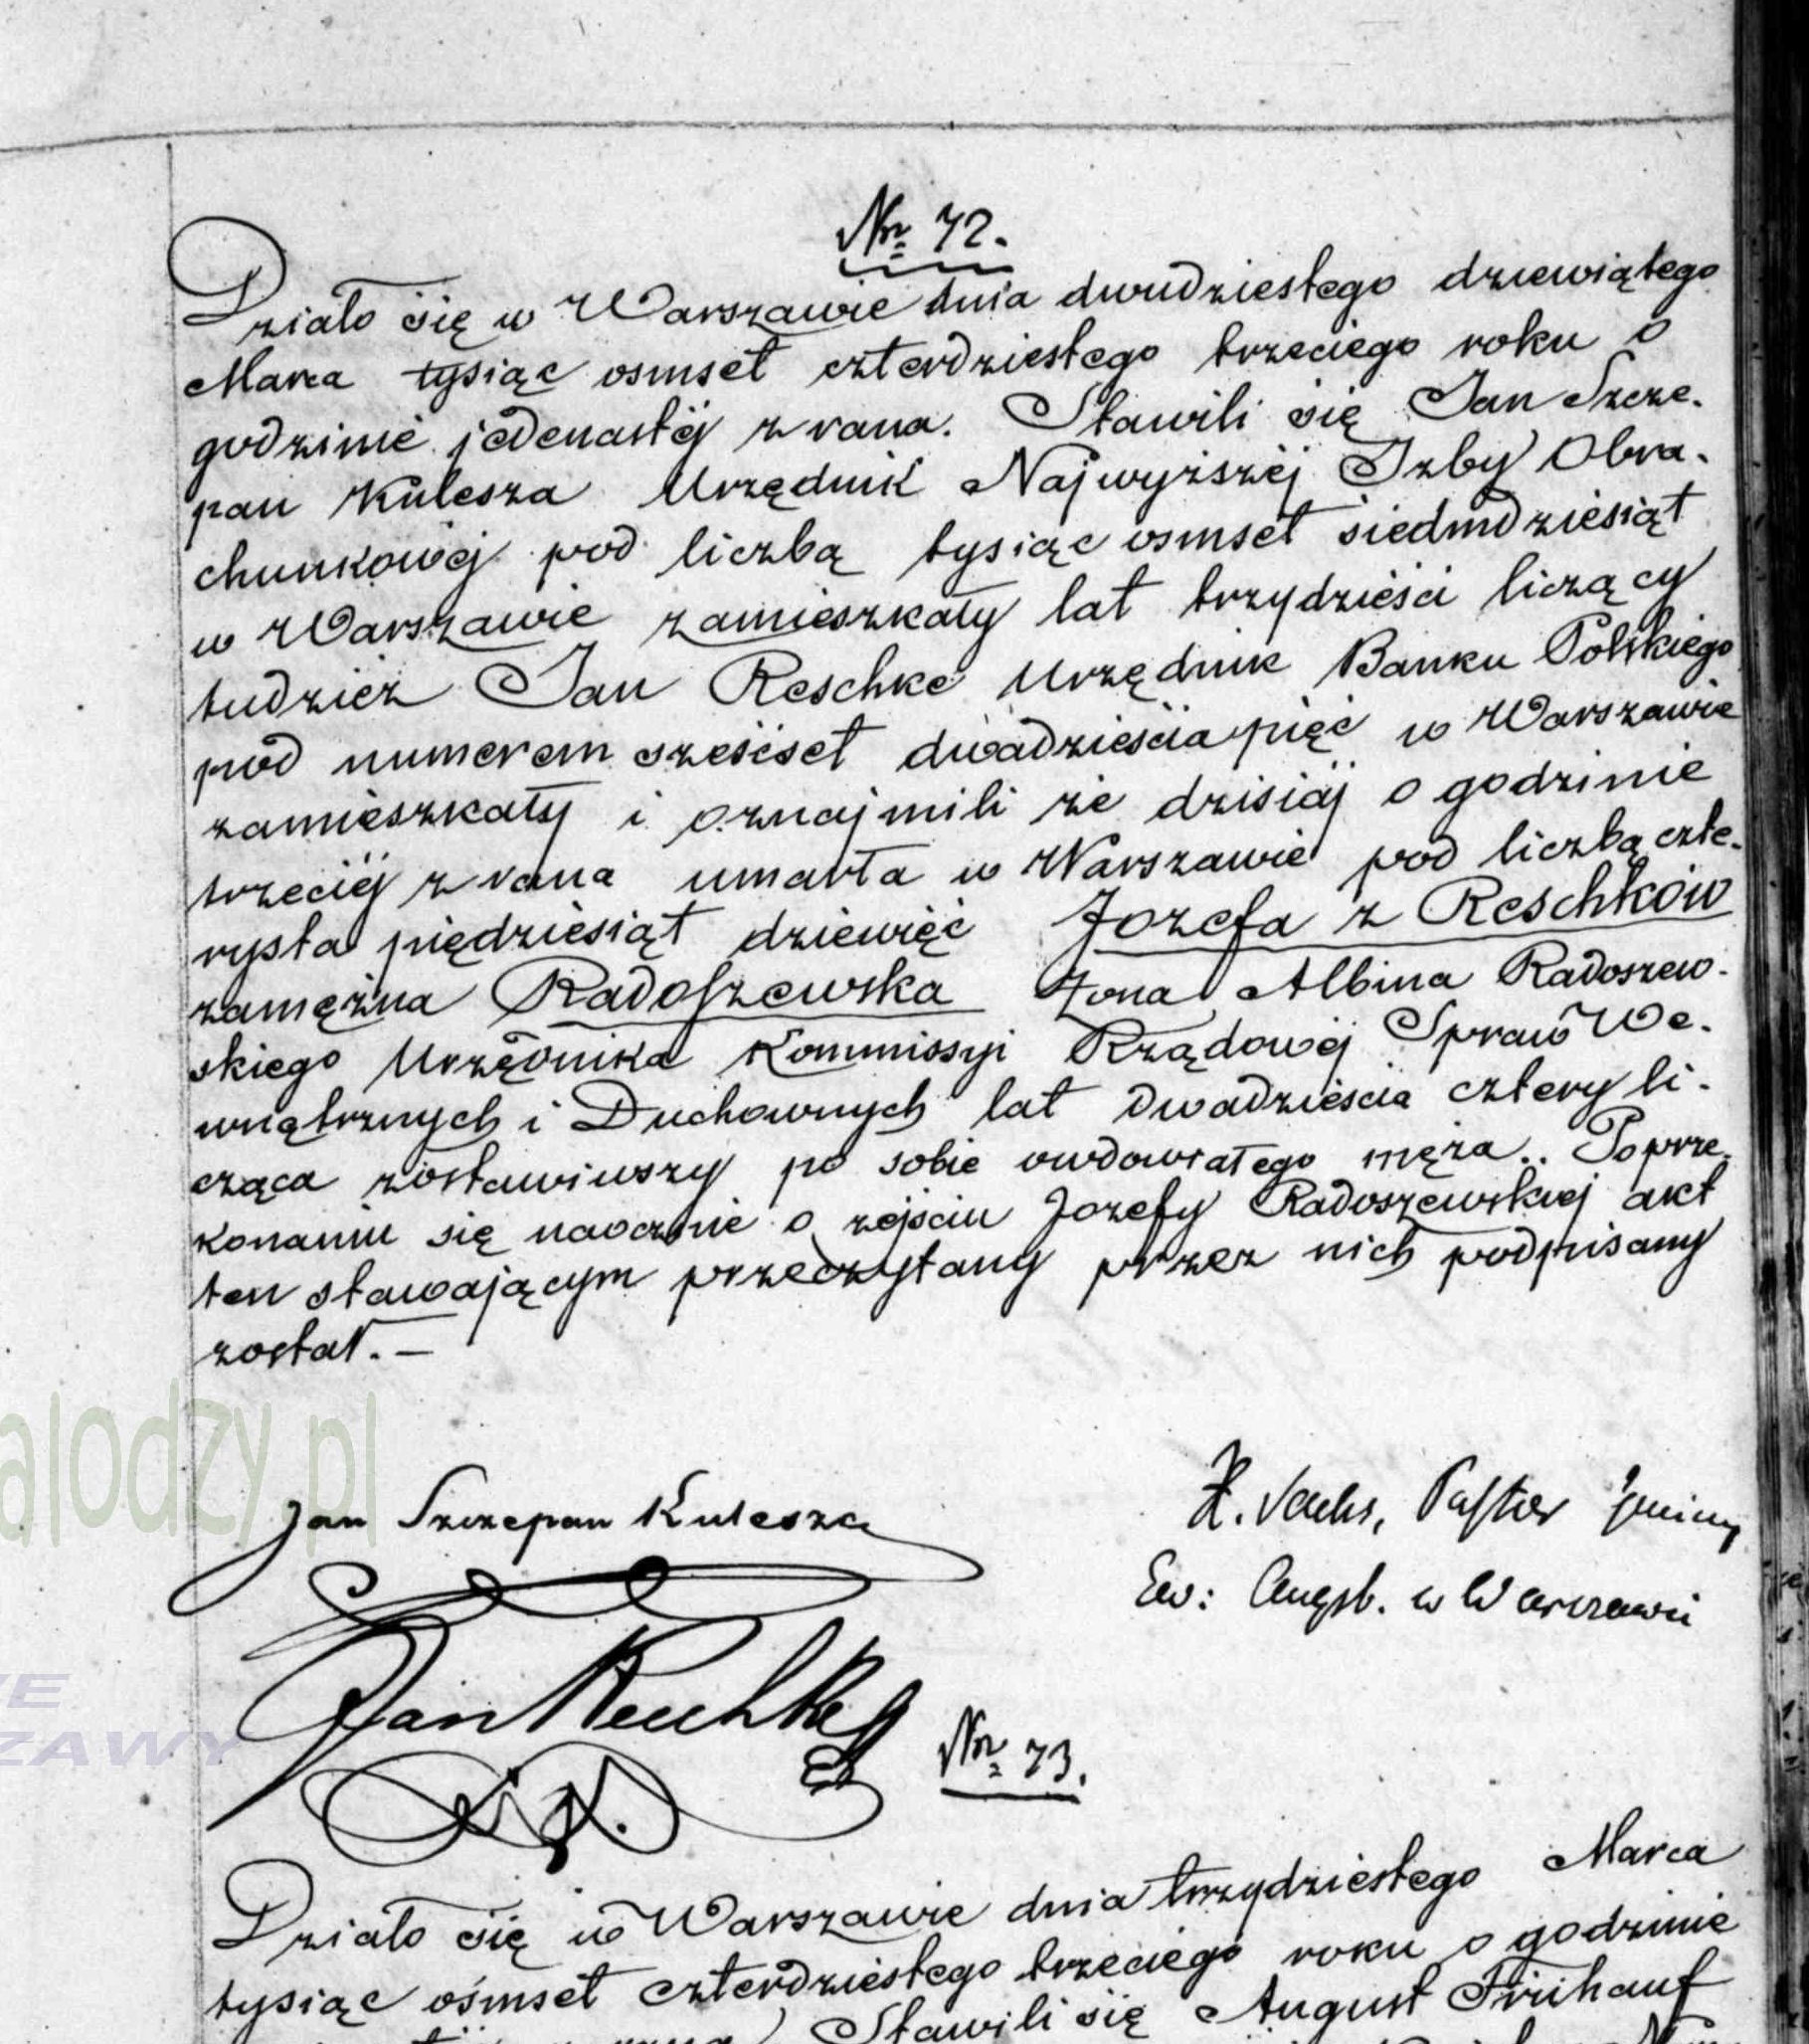 Nr 72.
Działo się w Warszawie dnia dwudziestego dziewiątego
Marca tysiąc osmset czterdziestego trzeciego roku o
godzinie jedenastéj z rana. Stawili się Jan Szcze-
pan Kulesza Urzędnik Najwyższéj Izby Obra-
chunkowéj pod liczbą tysiąc osmset siedmdziesiąt
w Warszawie zamieszkały lat trzydzieści liczący
tudzież Jan Reschke Urzędnik Banku Polskiego
pod numerem sześćset dwadzieścia pięć w Warszawie
zamieszkały i oznajmili że dzisiaj o godzinie
trzeciéj z rana umarła w Warszawie pod liczbą czte-
rysta piędziesiąt dziewięć Jozefa z Reschków
zamężna Radoszewska Żona Albina Radoszew-
skiego Urzędnika Kommissyi Rządowéj Spraw We-
wnątrznych i Duchownych lat dwadzieścia cztery li-
cząca zostawiwszy po sobie owdowiałego męża.. Poprze-
konaniu się naocznie o zejściu Jozefy Radoszewskiej akt
ten stawającym przeczytany przez nich podpisany
został. —
Jan Szczepan Kulesza
Pastor Gminy
Ew: Augsb. w Warszawie
Jan Reschke
Nr 73.
Działo się w Warszawie dnia trzydziestego Marca
tysiąc ośmset czterdziestego trzeciego roku o godzinie
rana Stawili się August Frühauf
alodzy.pl
ZAWY